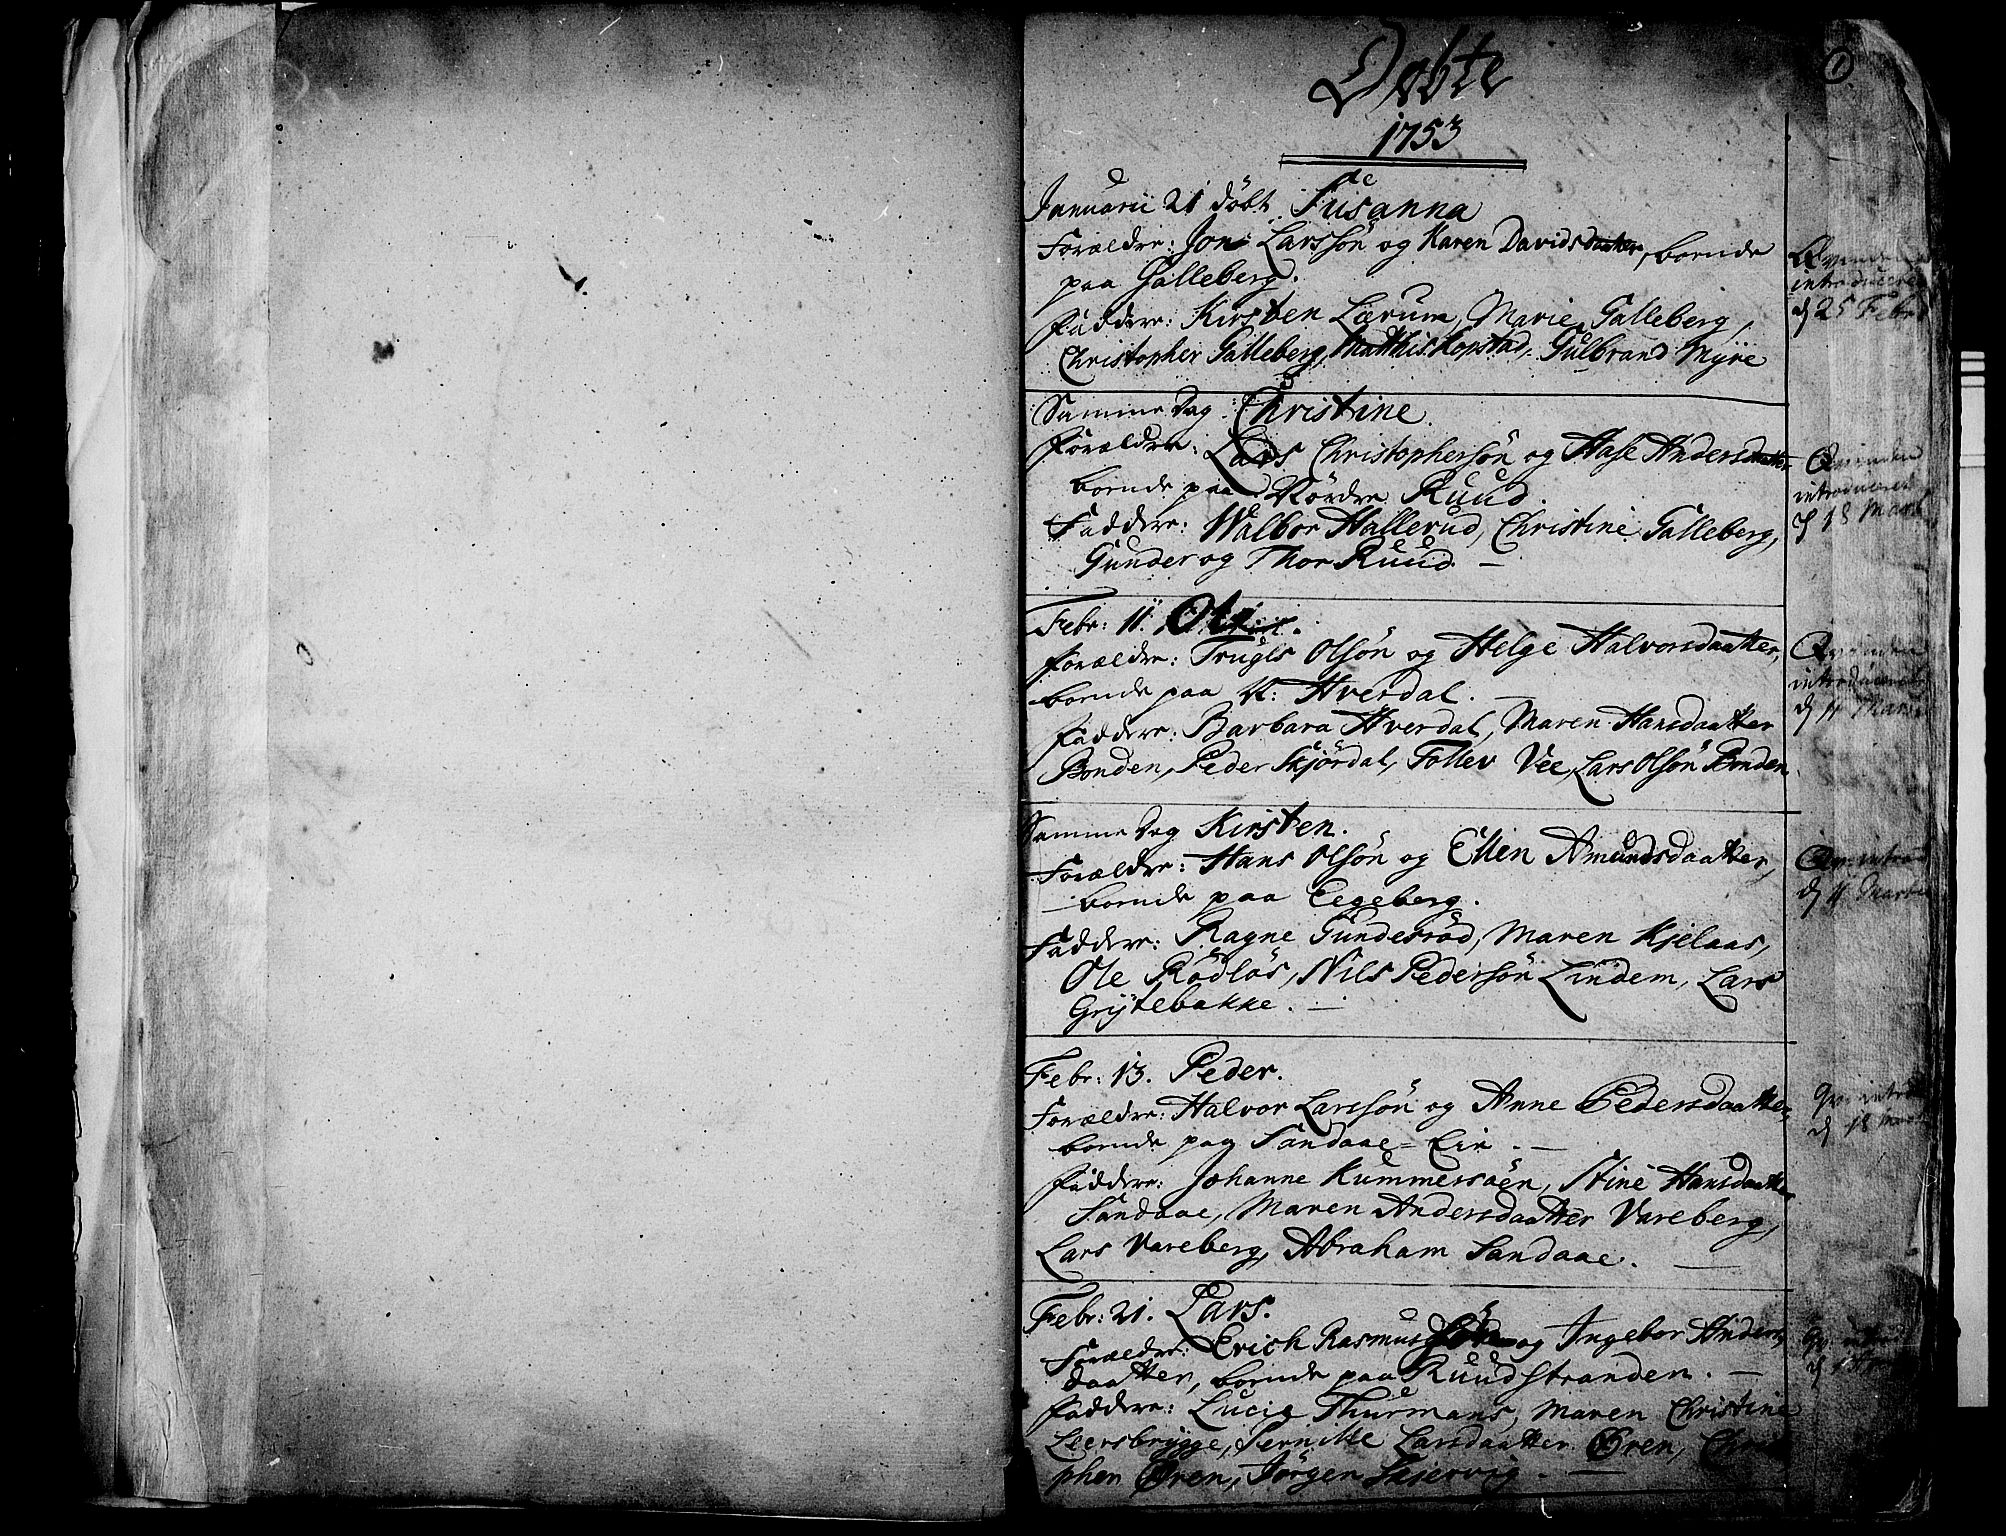 1
Døbte
1753
Januarii 21 døbt Susanna
Forældre: Jon Larssøn og Karen Davidsdaatter, boende
paa Galleberg.
Faddere: Kirsten Lærum, Marie Galleberg,
Christopher Galleberg, Matthis Kopstad, Gulbrand Myre
Qvinden
introduceret
d 25 Febr
Samme Dag Christine.
Forældre: Lars Christophersøn og Aase Andersdaatter
boende paa Nordre Ruud.
Faddere: Walbor Hallerud, Christine Galleberg,
Gunder og Thor Ruud. —
Qvinden
introduceret
d 18 Marti
Febr: 11. Ole
Forældre: TruGls Olsøn og Helge Halvorsdaatter,
boende paa N: Hverdal. —
Faddere: Barbara Hverdal, Maren Hansdaatter
Bonden, Peder Skjørdal, Tollev Vee, Lars Olsøn Bonden
Qvinden
introduceret
d 11 Marti
Samme Dag Kirsten.
Forældre: Hans Olsøn og Ellen Amundsdaatter,
boende paa Eegeberg.
Faddere: Ragne Gunderød, Maren Kjelaas,
Ole Rødløs, Nils Pedersøn Lindem, Lars
Grytebakke. —
Qv. introd
d 11 Marti
Febr: 13. Peder.
Forældre: Halvor Larssøn og Anne Pedersdaatter,
boende paa Sandaae-Eie. —
Faddere: Johanne Kummersøen, Stine Hansdaatter
Sandaae, Maren Andersdaatter Vareberg,
Lars Vareberg, Abraham Sandaae. —
Qv. introd
d 18 Marti
Febr: 21. Lars.
Forældre: Erich Rasmussøn og Ingebor Anders
daatter, boende paa Ruudstranden. —
Faddere: Lucia Thurmans, Maren Christine
Leersbrygge, Pernille Larsdaatter Øren, Christo
pher Øren, Jørgen Skiervig. —
Qv introd